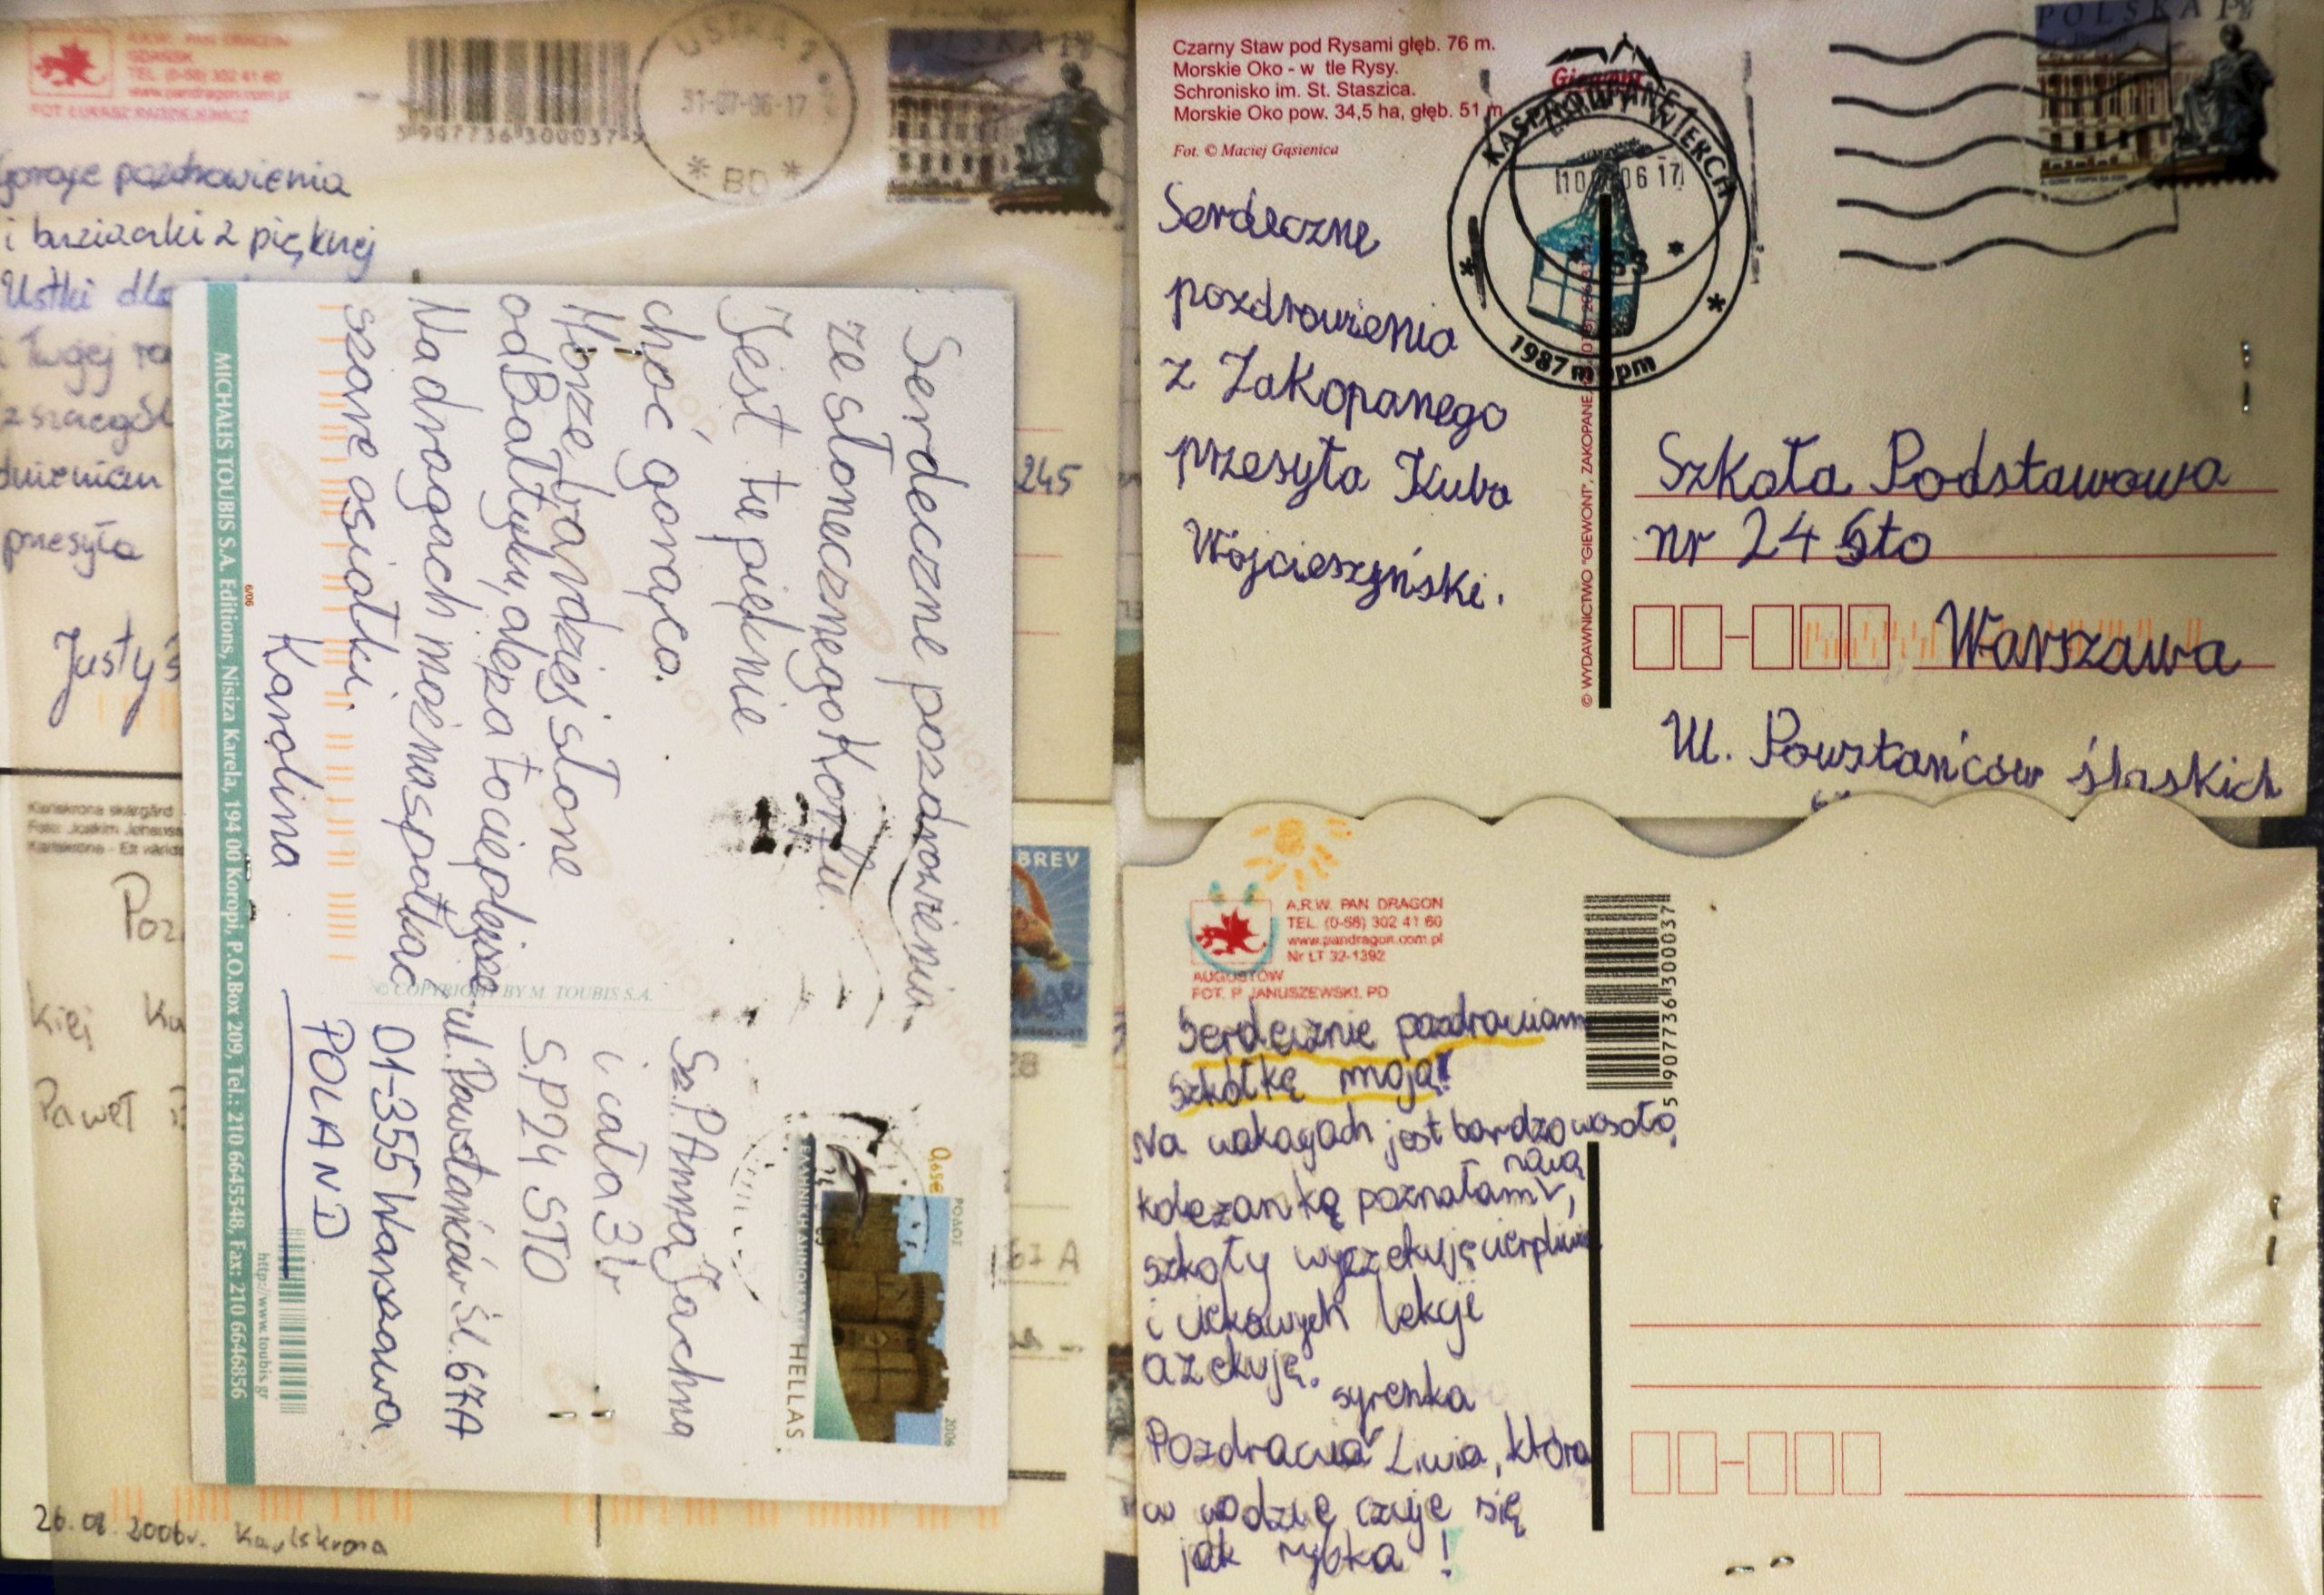 A.R.W. PAN DRAGON
GDAŃSK
TEL. (0-58) 302 41 60
www.pandragon.com.pl
5 907736 300037
USTKA 1
31-07-06-17
* BD *
POLSKA
Gorące pozdrowienia
i buziaczki z pięknej
Ustki dla
i Twojej
przesyła
Justy
245
Karlskrona skärgård
Poz
kiej
Paweł
26.08.2006r. Karlskrona
BREV
67 A
Serdeczne pozdrowienia
ze słonecznego Korfu.
Jest tu pięknie
choć gorąco.
Morze bardziej słone
od Bałtyku, ale za to cieplejsze
Na drogach można spotkać
szare osiołki
Karolina
© COPYRIGHT BY M. TOUBIS S.A.
Sz.P. Anna Jachna
i cała 3b
S.P 24 STO
ul. Powstańców Śl. 67A
01-355 Warszawa
POLAND
0,65€
ΡΟΔΟΣ
2006
HELLAS
http://www.toubis.gr
MICHALIS TOUBIS S.A. Editions, Nisiza Karela, 194 00 Koropi, P.O.Box 209, Tel.: 210 6645548, Fax: 210 6646856
6/06
Czarny Staw pod Rysami głęb. 76 m.
Morskie Oko - w tle Rysy.
Schronisko im. St. Staszica.
Morskie Oko pow. 34,5 ha, głęb. 51 m.
Fot. © Maciej Gąsienica
KASPROWY WIERCH
ZAKOPANE 1
1987 m npm
POLSKA
Serdeczne
pozdrowienia
z Zakopanego
przesyła Kuba
Wojcieszyński.
© WYDAWNICTWO "GIEWONT", ZAKOPANE,
Szkoła Podstawowa
nr 24 Sto
Warszawa
Ul. Powstańców śląskich
A.R.W. PAN DRAGON
TEL. (0-58) 302 41 60
www.pandragon.com.pl
Nr LT 32-1392
AUGUSTÓW
FOT. P. JANUSZEWSKI, PD
5 907736 300037
Serdecznie pozdrawiam
szkółkę moją!
Na wakacjach jest bardzo wesoło,
nową
koleżankę poznałam,
szkoły wyczekuję cierpliwie
i ciekawych lekcji
czekuję.
syrenka
Pozdrawia Liwia, która
w wodzie czuje się
jak rybka!